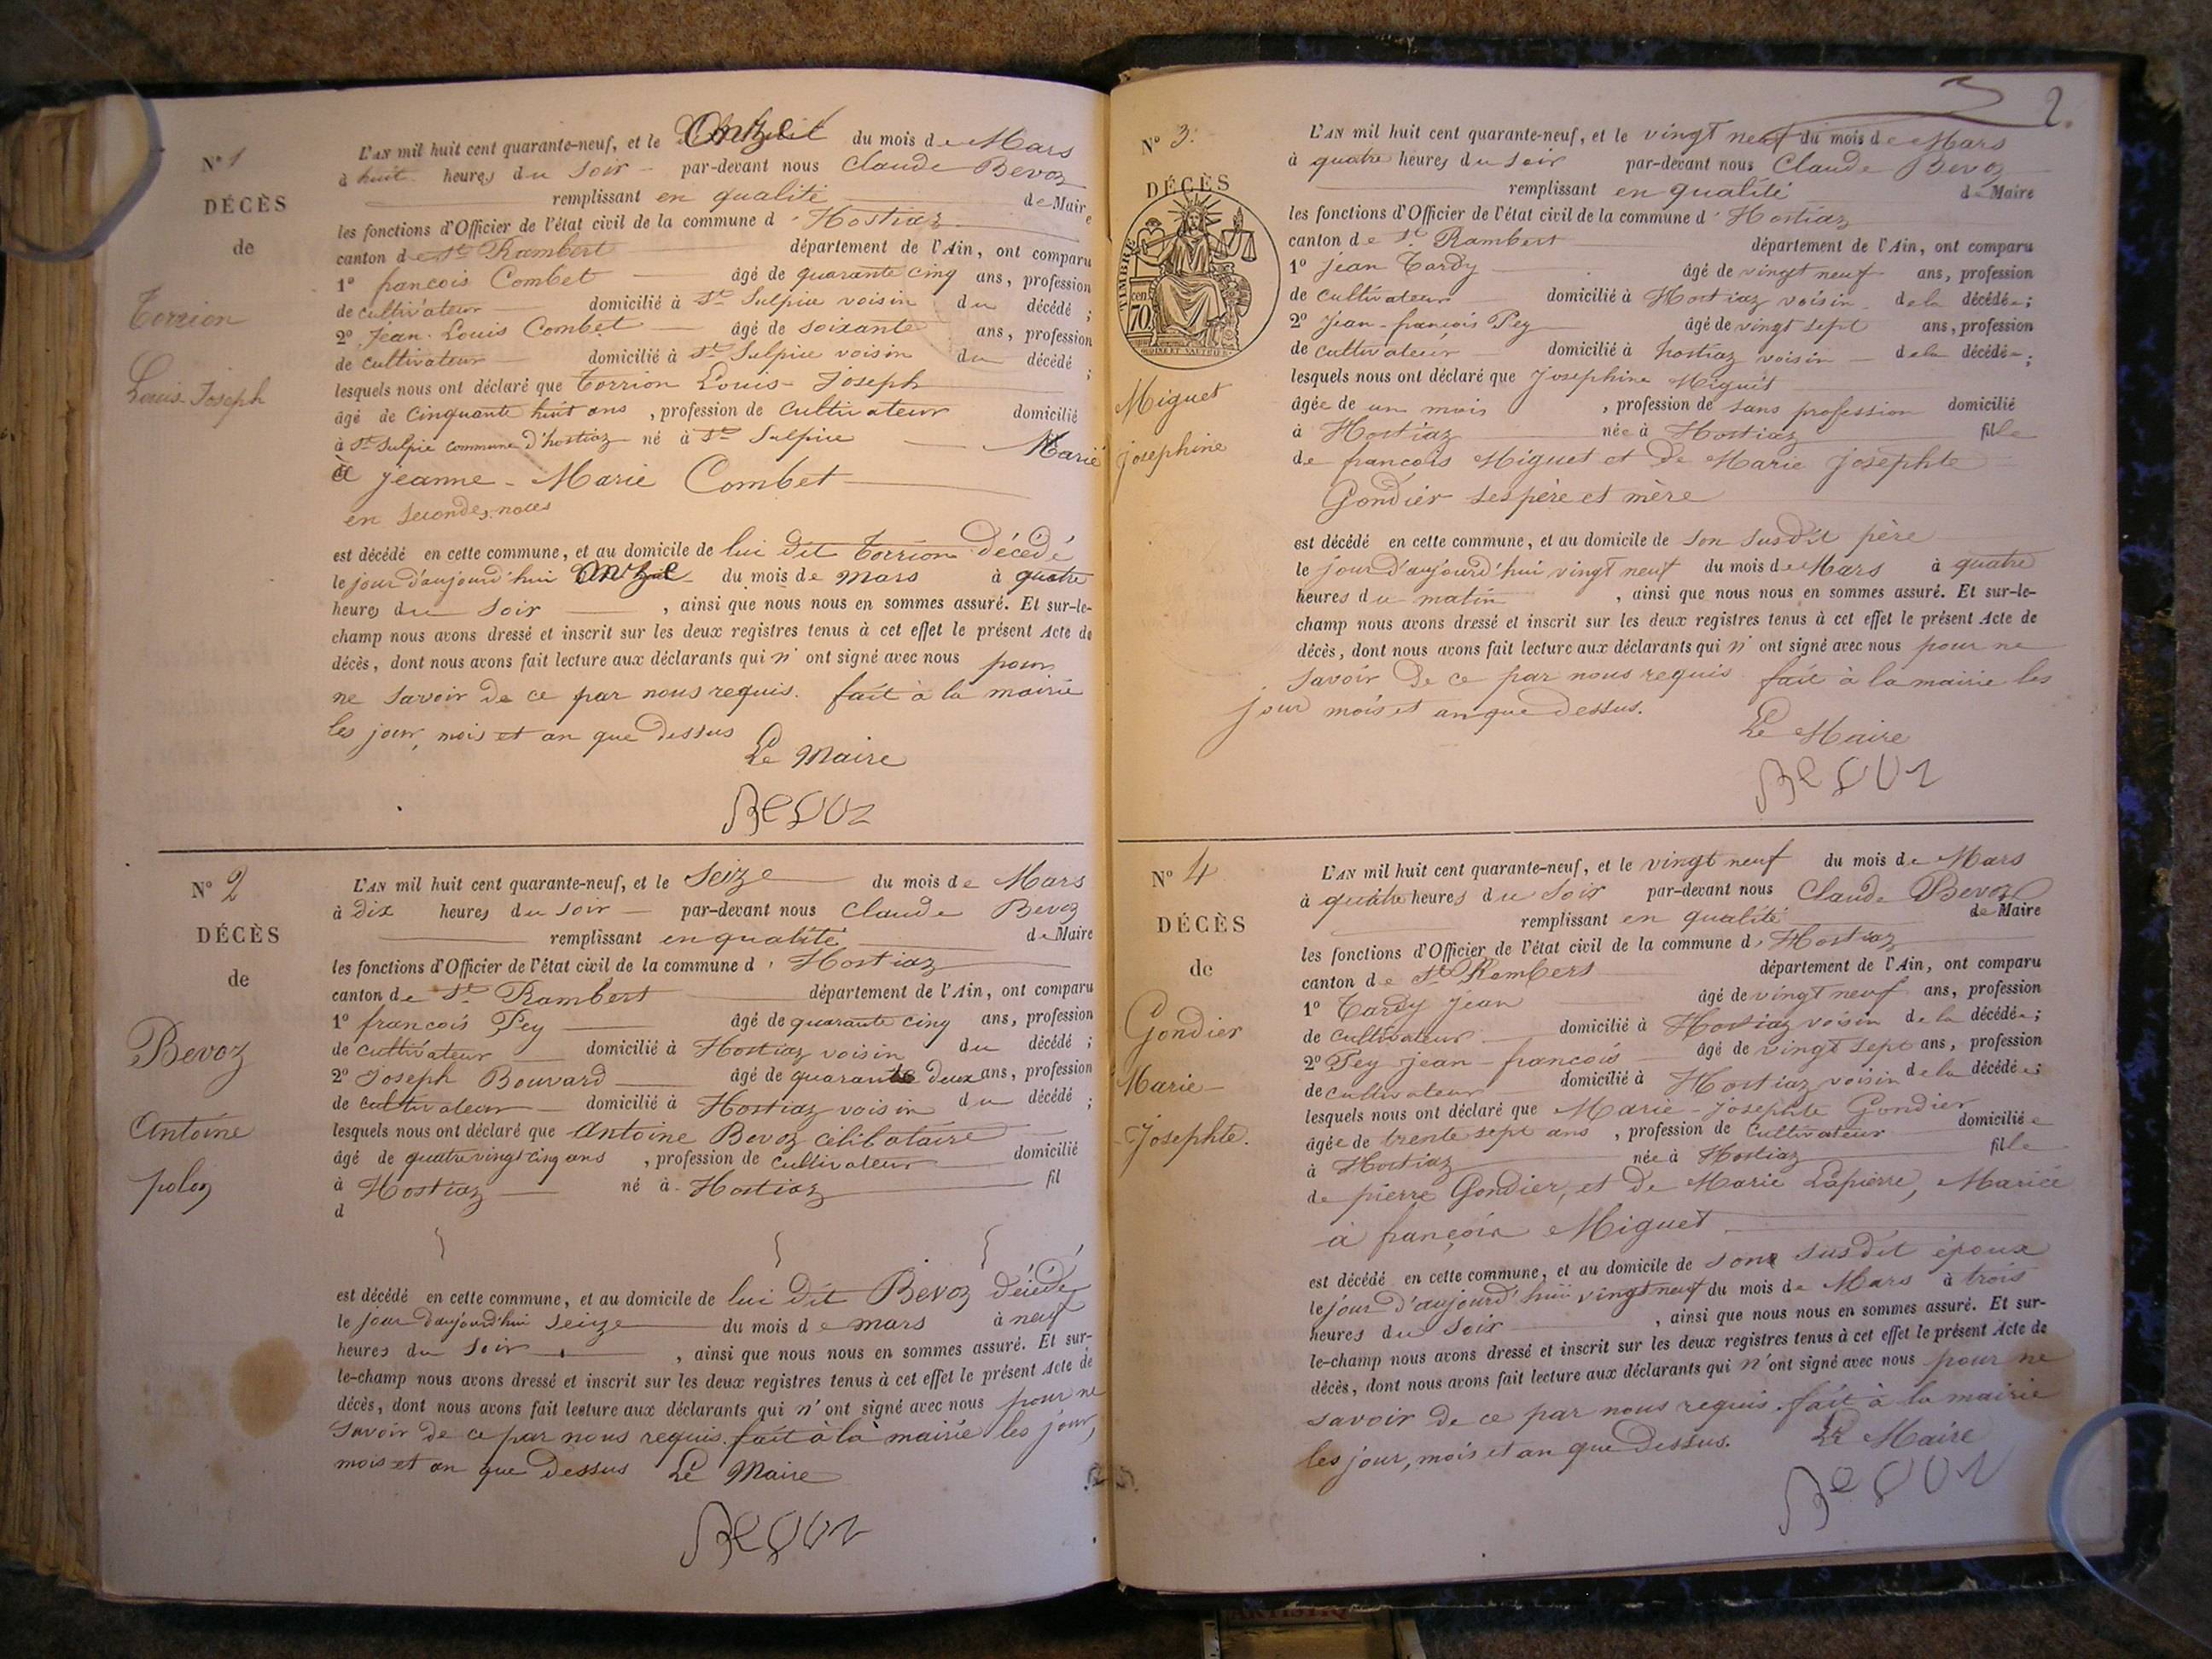 N° 1
DÉCÈS
de
Torrion
Louis-Joseph
L'AN mil huit cent quarante-neuf, et le Onze du mois de Mars
à huit heures du Soir par-devant nous Claude Bevoz
remplissant en qualité de Maire
les fonctions d'Officier de l'état civil de la commune d'Hostiaz
canton de St Rambert département de l'Ain, ont comparu
1° francois Combet âgé de quarante cinq ans, profession
de cultivateur domicilié à St Sulpice voisin du décédé ;
2° Jean-Louis Combet âgé de soixante ans, profession
de cultivateur domicilié à St Sulpice voisin du décédé ;
lesquels nous ont déclaré que Torrion Louis-Joseph
âgé de cinquante huit ans, profession de cultivateur domicilié
à St Sulpice commune d'hostiaz né à St Sulpice Marié
à jeanne-Marie Combet
en secondes noces
est décédé en cette commune, et au domicile de lui dit Torrion décédé
le jour d'aujourd'hui onze du mois de mars à quatre
heures du soir, ainsi que nous nous en sommes assuré. Et sur-le-
champ nous avons dressé et inscrit sur les deux registres tenus à cet effet le présent Acte de
décès, dont nous avons fait lecture aux déclarants qui n'ont signé avec nous pour
ne savoir de ce par nous requis. fait à la mairie
les jour, mois et an que dessus
Le Maire
Bevoz
N° 2
DÉCÈS
de
Bevoz
Antoine
L'AN mil huit cent quarante-neuf, et le Seize du mois de Mars
à dix heures du Soir par-devant nous Claude Bevoz
remplissant en qualité de Maire
les fonctions d'Officier de l'état civil de la commune d'Hostiaz
canton de St Rambert département de l'Ain, ont comparu
1° francois Pey âgé de quarante cinq ans, profession
de cultivateur domicilié à Hostiaz voisin du décédé ;
2° Joseph Bouvard âgé de quarante deux ans, profession
de cultivateur domicilié à Hostiaz voisin du décédé ;
lesquels nous ont déclaré que Antoine Bevoz célibataire
âgé de quatrevingt cinq ans, profession de cultivateur domicilié
à Hostiaz né à Hostiaz fil
d
est décédé en cette commune, et au domicile de lui dit Bevoz décédé
le jour d'aujourd'hui seize du mois de mars à neuf
heures du soir, ainsi que nous nous en sommes assuré. Et sur-
le-champ nous avons dressé et inscrit sur les deux registres tenus à cet effet le présent Acte de
décès, dont nous avons fait lecture aux déclarants qui n'ont signé avec nous pour ne
savoir de ce par nous requis. fait à la mairie les jour,
mois et an que dessus Le Maire
Bevoz
2.
N° 3.
DÉCÈS
TIMBRE
70 cen
Miguet
Josephine
L'AN mil huit cent quarante-neuf, et le vingt neuf du mois de Mars
à quatre heures du soir par-devant nous Claude Bevoz
remplissant en qualité de Maire
les fonctions d'Officier de l'état civil de la commune d'Hostiaz
canton de St Rambert département de l'Ain, ont comparu
1° jean Tardy âgé de vingt neuf ans, profession
de cultivateur domicilié à Hostiaz voisin de la décédée ;
2° Jean-francois Pey âgé de vingt sept ans, profession
de cultivateur domicilié à hostiaz voisin de la décédée ;
lesquels nous ont déclaré que Josephine Miguet
âgée de un mois, profession de sans profession domicilié
à Hostiaz née à Hostiaz fille
de francois Miguet et de Marie Josephte
Gondier ses père et mère
est décédé en cette commune, et au domicile de son susdit père
le jour d'aujourd'hui vingt neuf du mois de Mars à quatre
heures du matin, ainsi que nous nous en sommes assuré. Et sur-le-
champ nous avons dressé et inscrit sur les deux registres tenus à cet effet le présent Acte de
décès, dont nous avons fait lecture aux déclarants qui n'ont signé avec nous pour ne
savoir de ce par nous requis fait à la mairie les
jour mois et an que dessus.
Le Maire
Bevoz
N° 4
DÉCÈS
de
Gondier
Marie-
Josephte.
L'AN mil huit cent quarante-neuf, et le vingt neuf du mois de Mars
à quatre heures du soir par-devant nous Claude Bevoz
remplissant en qualité de Maire
les fonctions d'Officier de l'état civil de la commune d'Hostiaz
canton de St Rambert département de l'Ain, ont comparu
1° Tardy Jean âgé de vingt neuf ans, profession
de cultivateur domicilié à Hostiaz voisin de la décédée ;
2° Pey jean-francois âgé de vingt sept ans, profession
de cultivateur domicilié à Hostiaz voisin de la décédée ;
lesquels nous ont déclaré que Marie-josephte Gondier
âgée de trente sept ans, profession de cultivateur domiciliée
à Hostiaz née à Hostiaz fille
de pierre Gondier, et de Marie Lapierre, Mariée
à françois Miguet
est décédé en cette commune, et au domicile de son susdit époux
le jour d'aujourd'hui vingt neuf du mois de Mars à trois
heures du soir, ainsi que nous nous en sommes assuré. Et sur-
le-champ nous avons dressé et inscrit sur les deux registres tenus à cet effet le présent Acte de
décès, dont nous avons fait lecture aux déclarants qui n'ont signé avec nous pour ne
savoir de ce par nous requis. fait à la mairie
les jour, mois et an que dessus. Le Maire
Bevoz